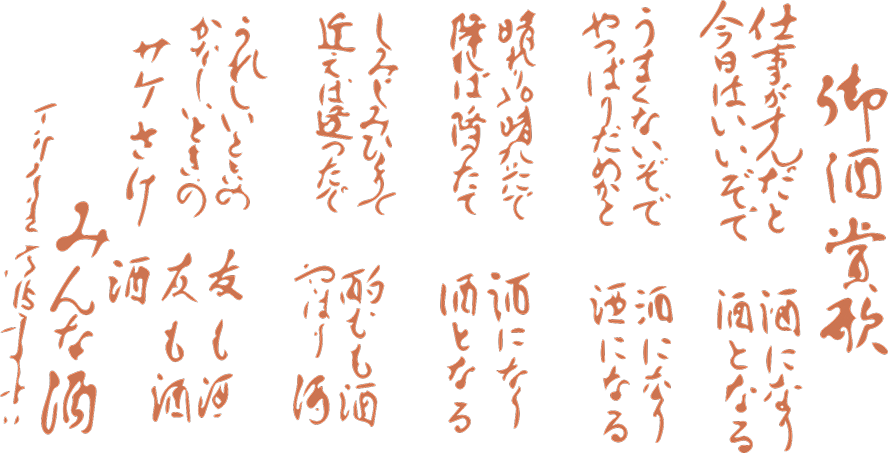 御酒賞歌
仕事がすんだと 酒になり
今日はいいぞで 酒となる
うまくないぞで 酒になり
やっぱりだめかと 酒になる
晴れりゃ晴れたで 酒になり
降れば降ったて 酒となる
しみじみひとりで 酌むも酒
逢えば逢ったで やはり酒
うれしいときの 友も酒
かなしいときの 友も酒
サケさけ 酒
みんな酒